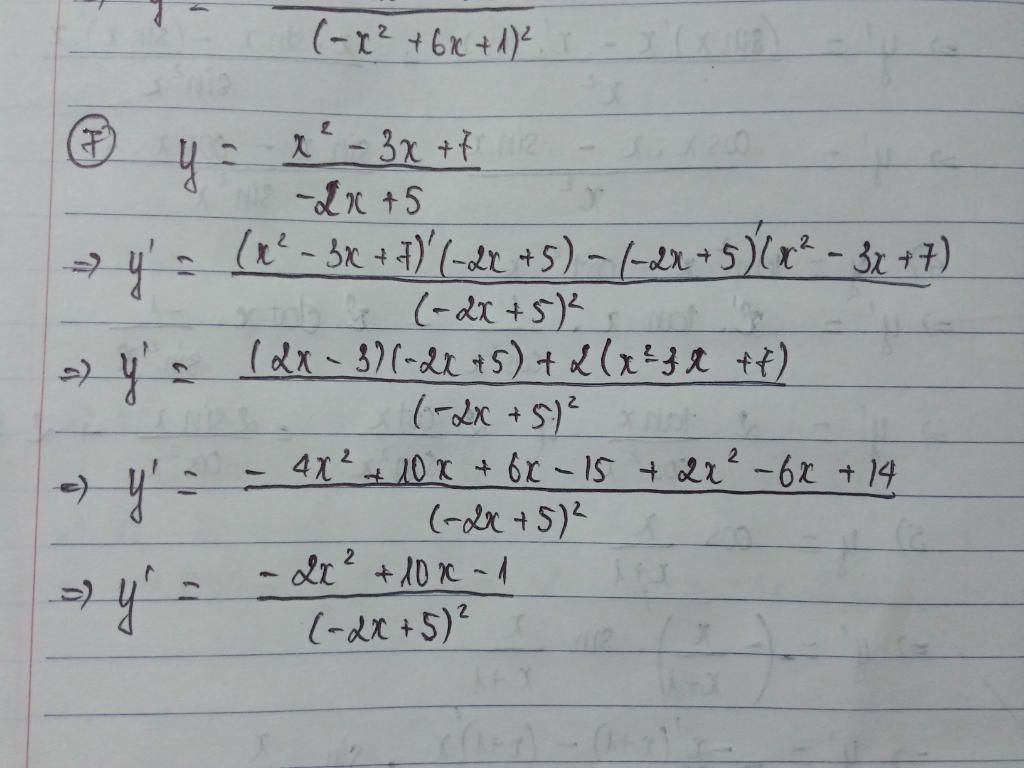 (-x² + 6x + 1)²
⑦ y = (x² - 3x + 7) / (-2x + 5)
⇒ y' = ((x² - 3x + 7)'(-2x + 5) - (-2x + 5)'(x² - 3x + 7)) / (-2x + 5)²
⇒ y' = ((2x - 3)(-2x + 5) + 2(x² - 3x + 7)) / (-2x + 5)²
⇒ y' = (- 4x² + 10x + 6x - 15 + 2x² - 6x + 14) / (-2x + 5)²
⇒ y' = (- 2x² + 10x - 1) / (-2x + 5)²